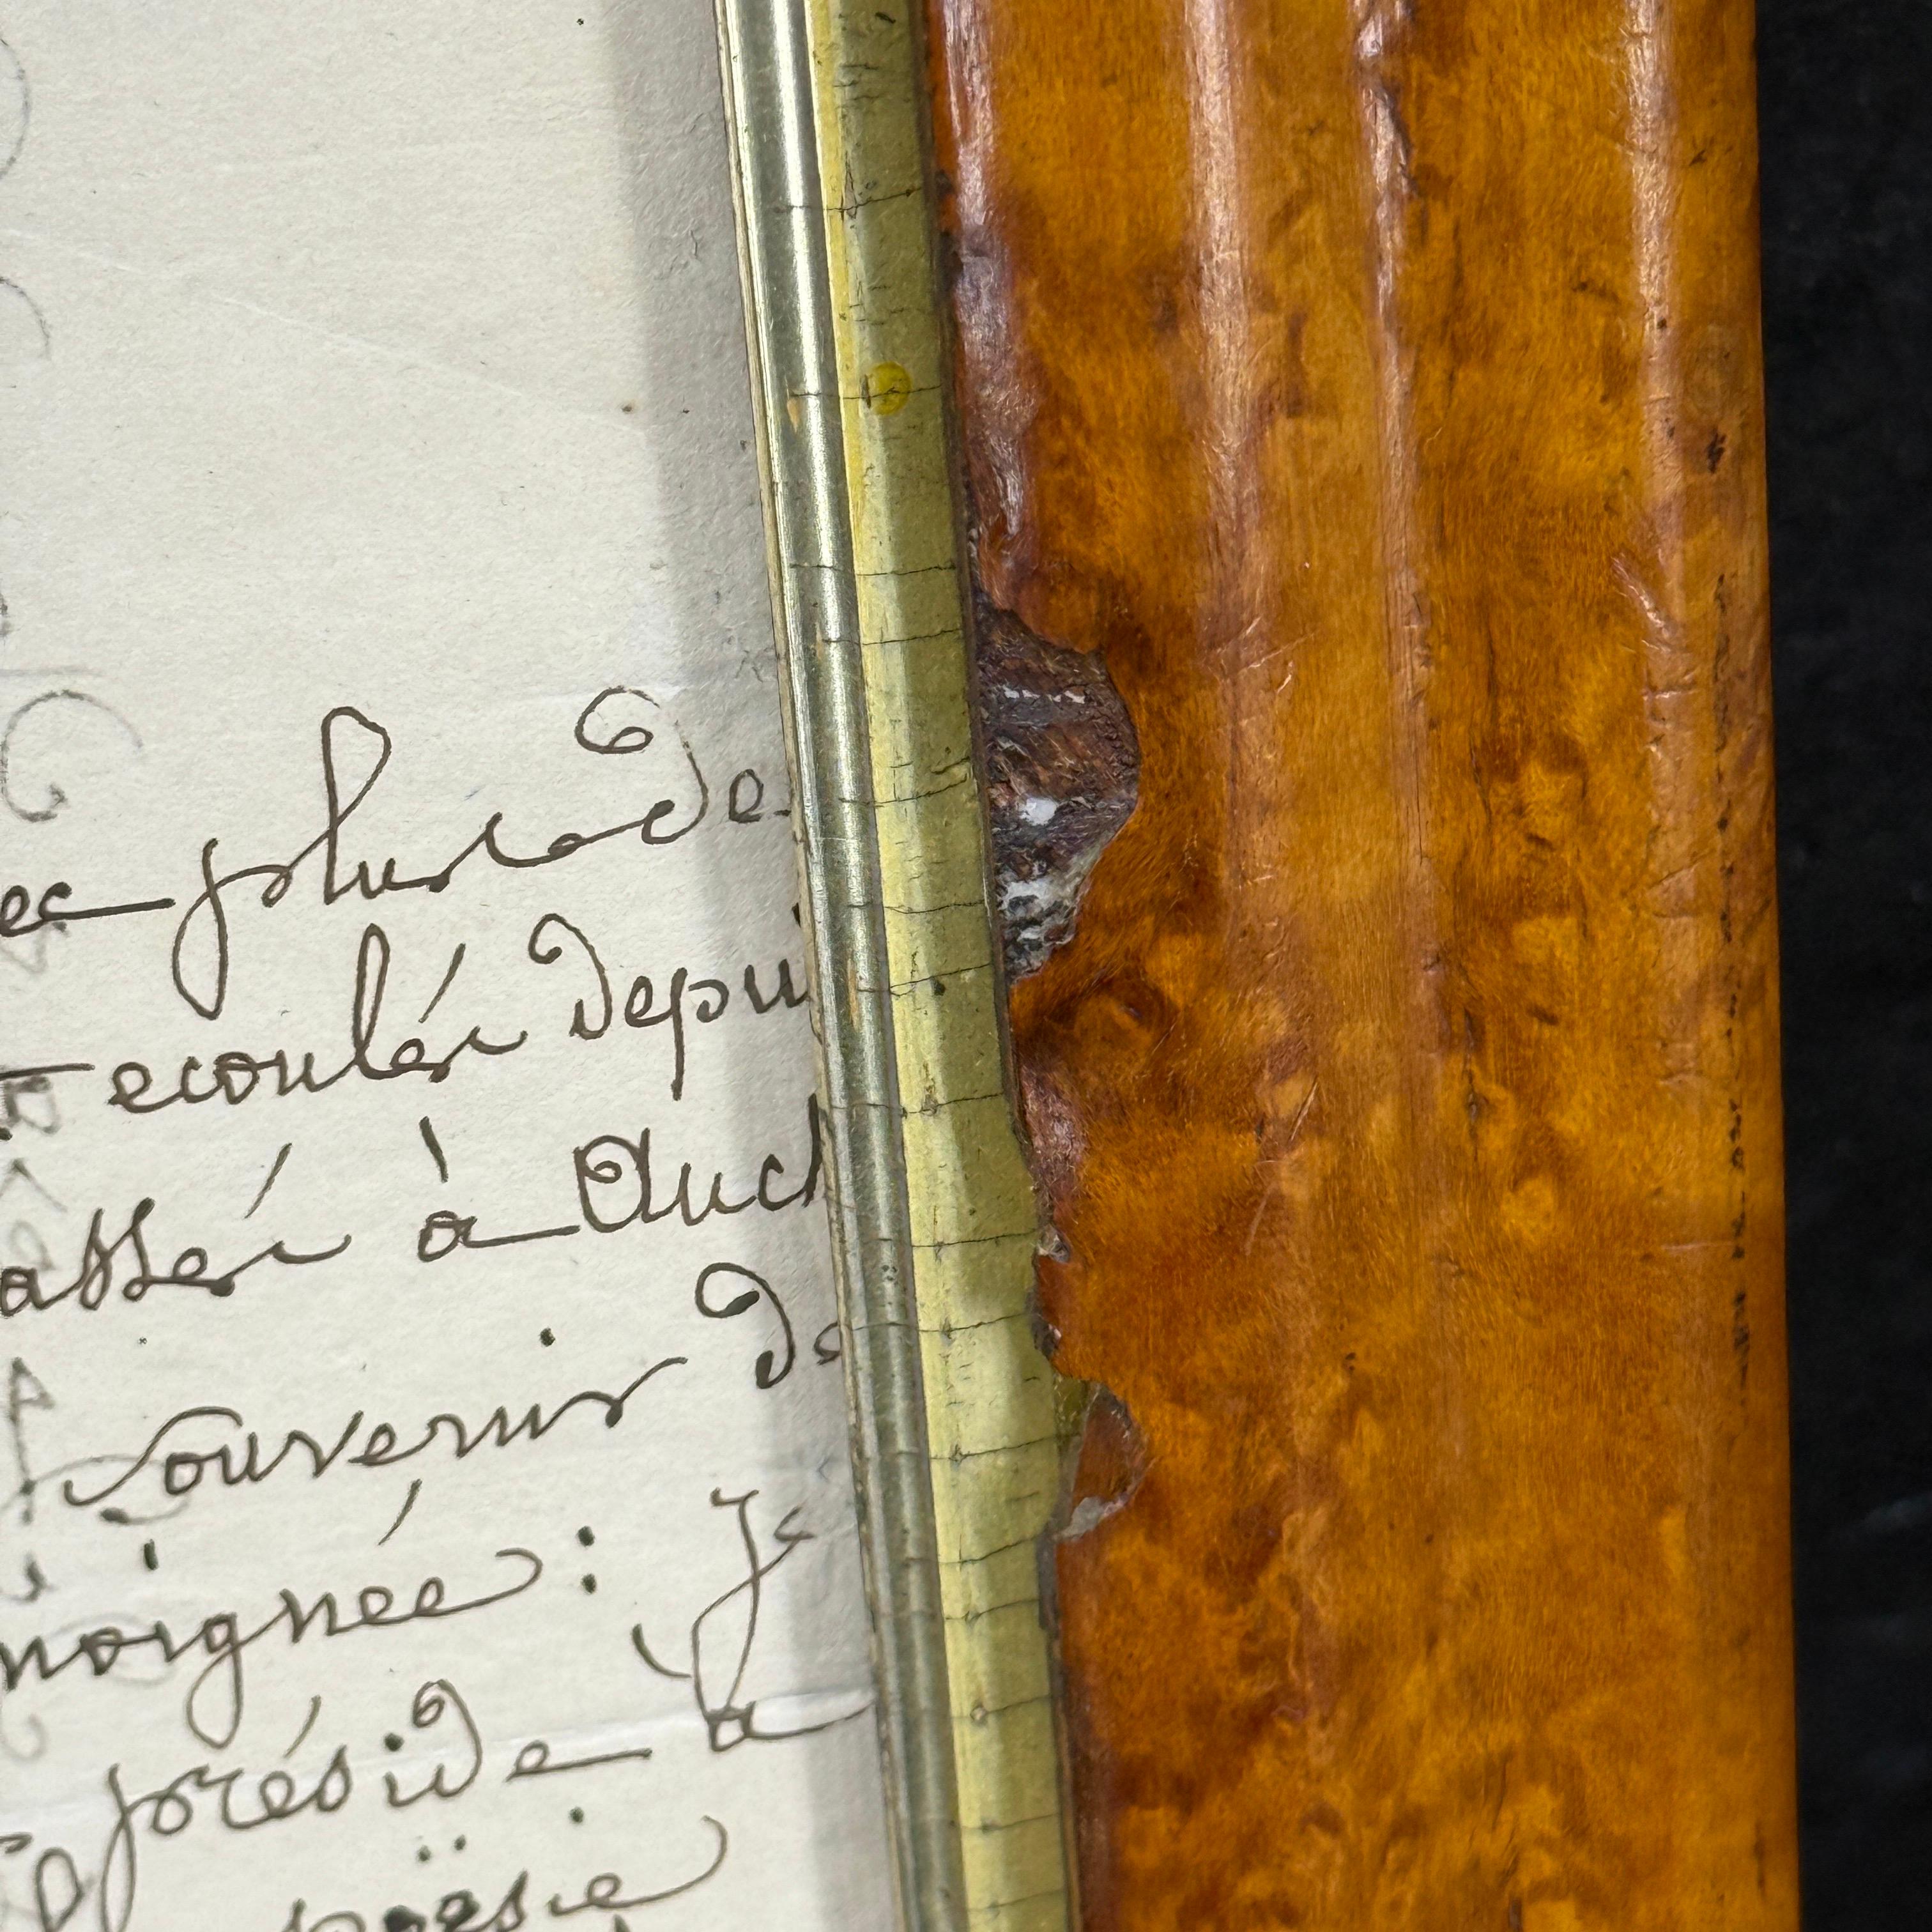 plus de
ecoulés depui
à Auch
Souvenir de
moignée : Je
préside à
poësie